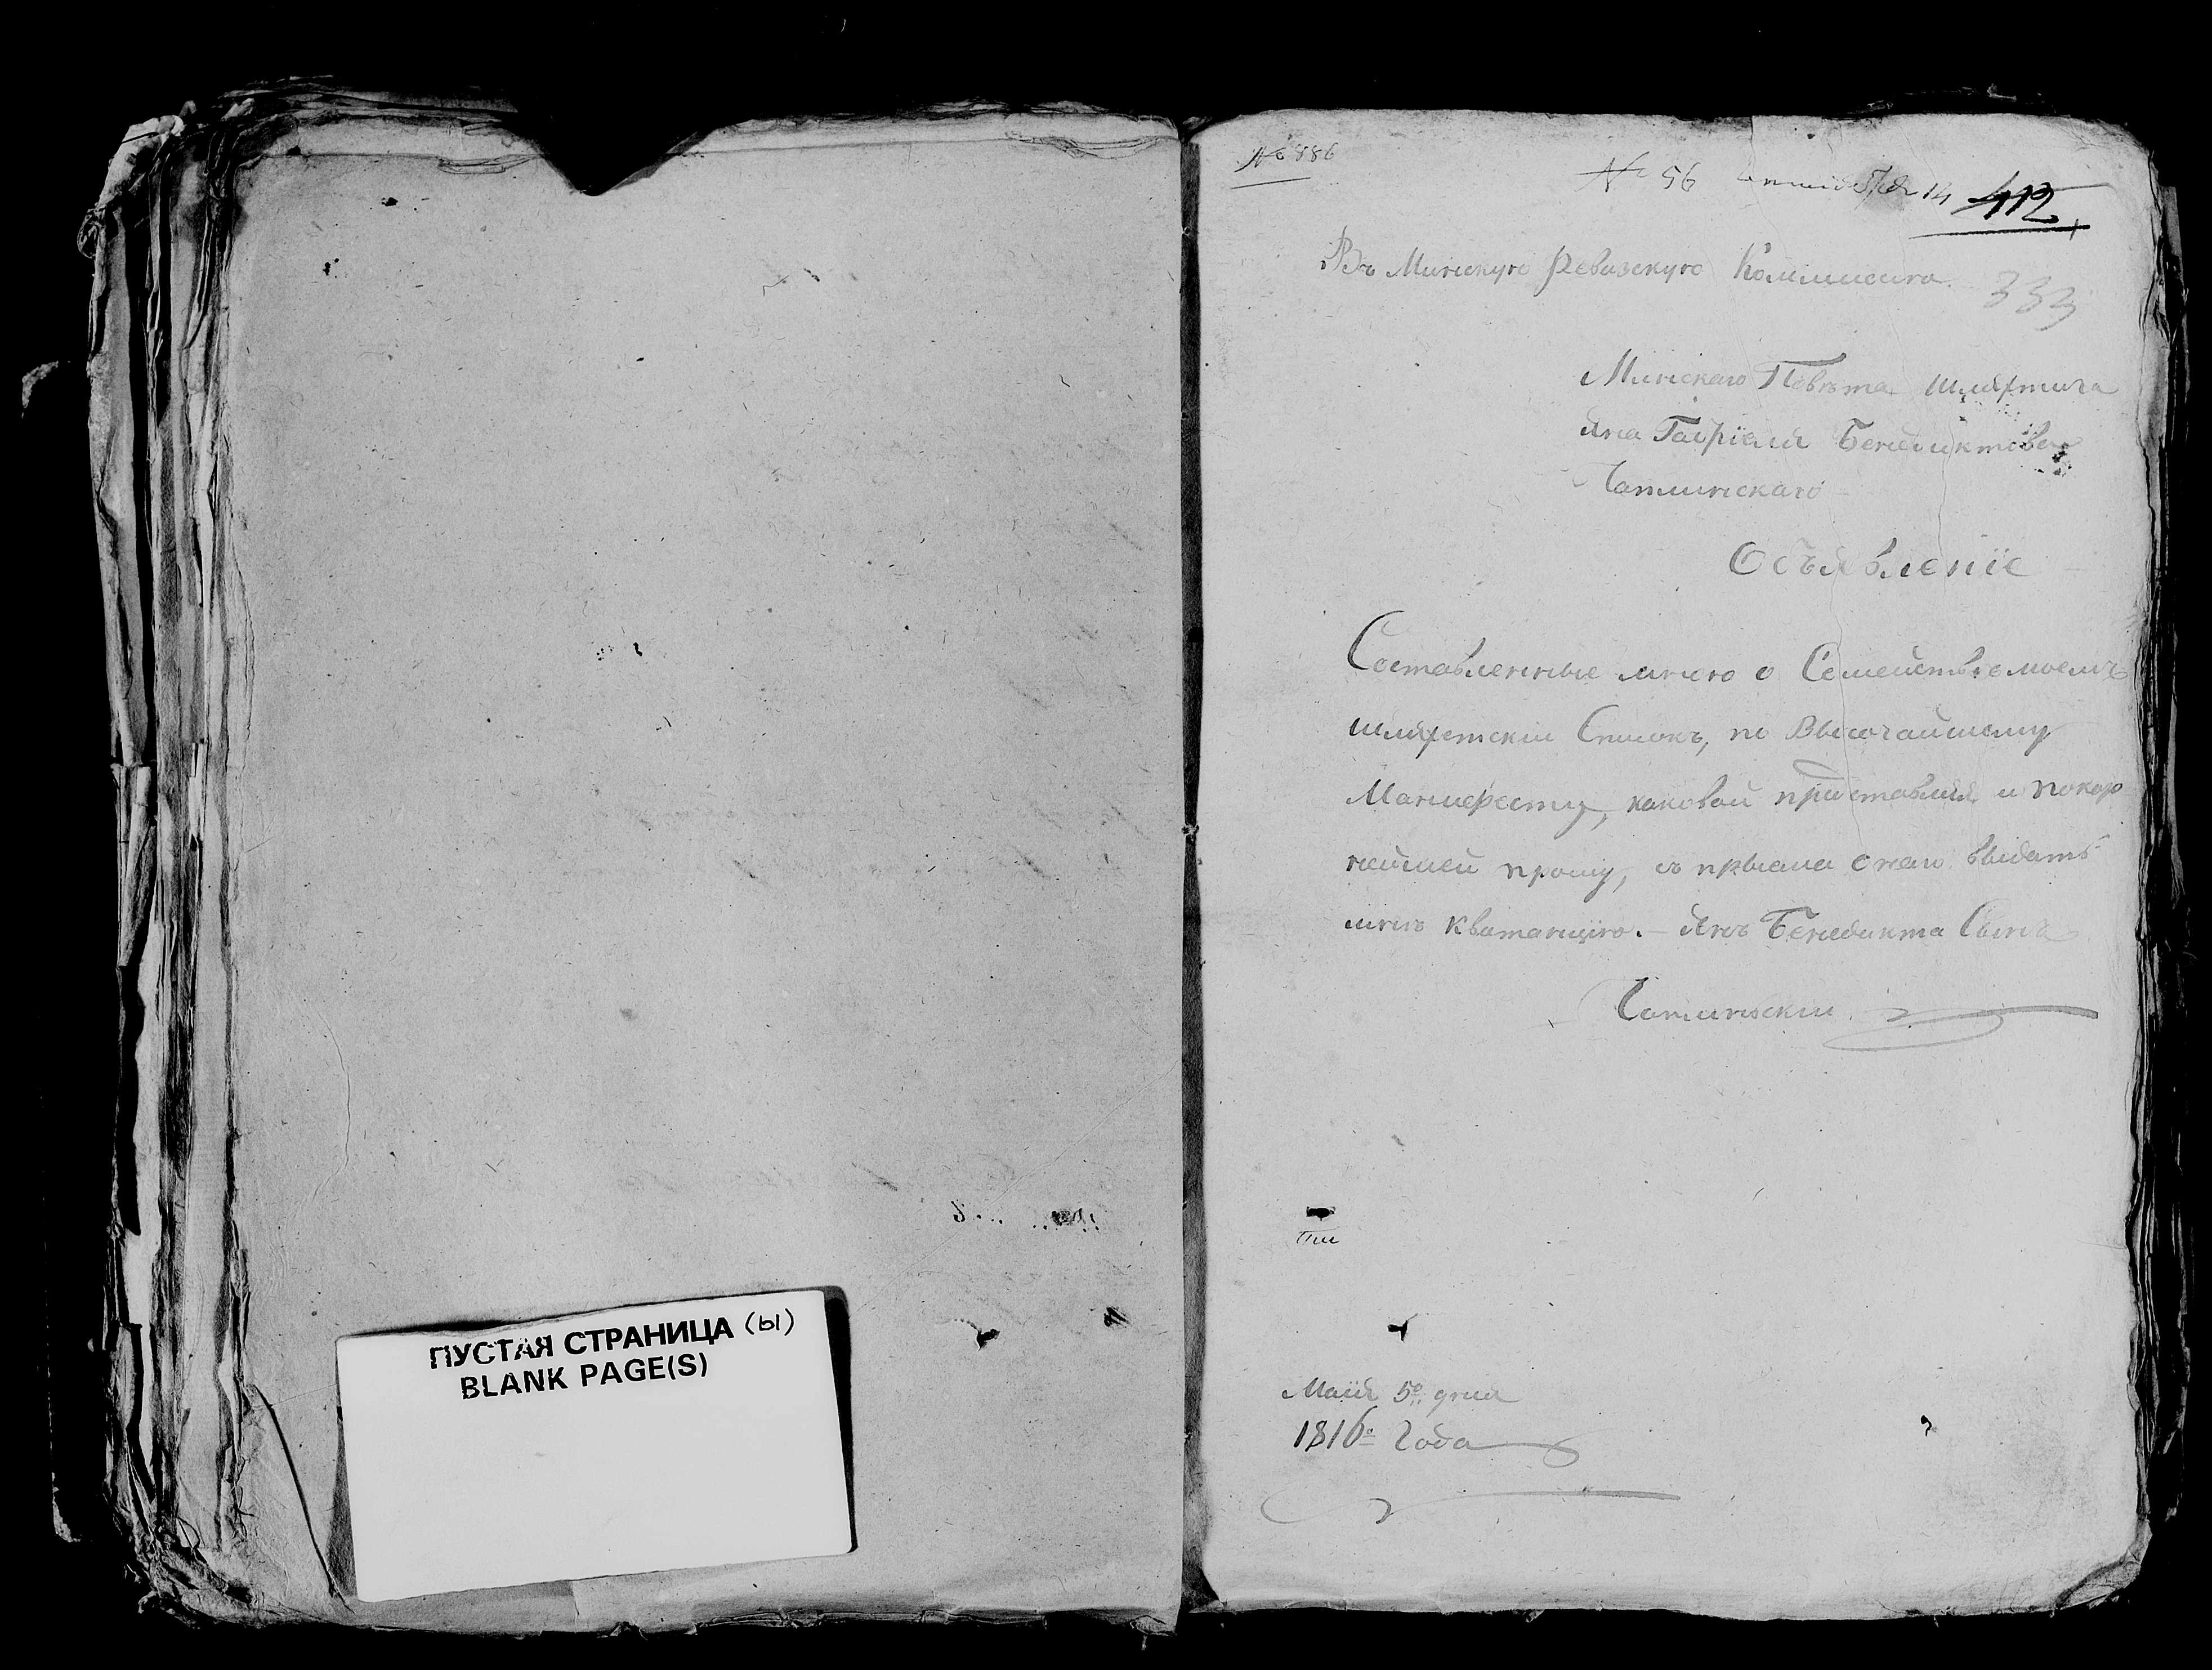 ПУСТАЯ СТРАНИЦА (ы)
BLANK PAGE(S)
№ 886
№ 56 14 412
Въ Минскую Ревизскую Коммисию.
333
Минскаго Повѣта шляхтича
Яна Гаврiеля Бенедиктова
Объявленiе
Составленные мною о Семействѣ моемъ
шляхетскiи Списокъ, по Высочайшему
Манифесту, каковой приставляя и покор
нейшей прошу, въ прыема онаго выдать
мнѣ Квитанцiю. – Янъ Бенедикта Сынъ
Маiя 5го дня
1816го Года